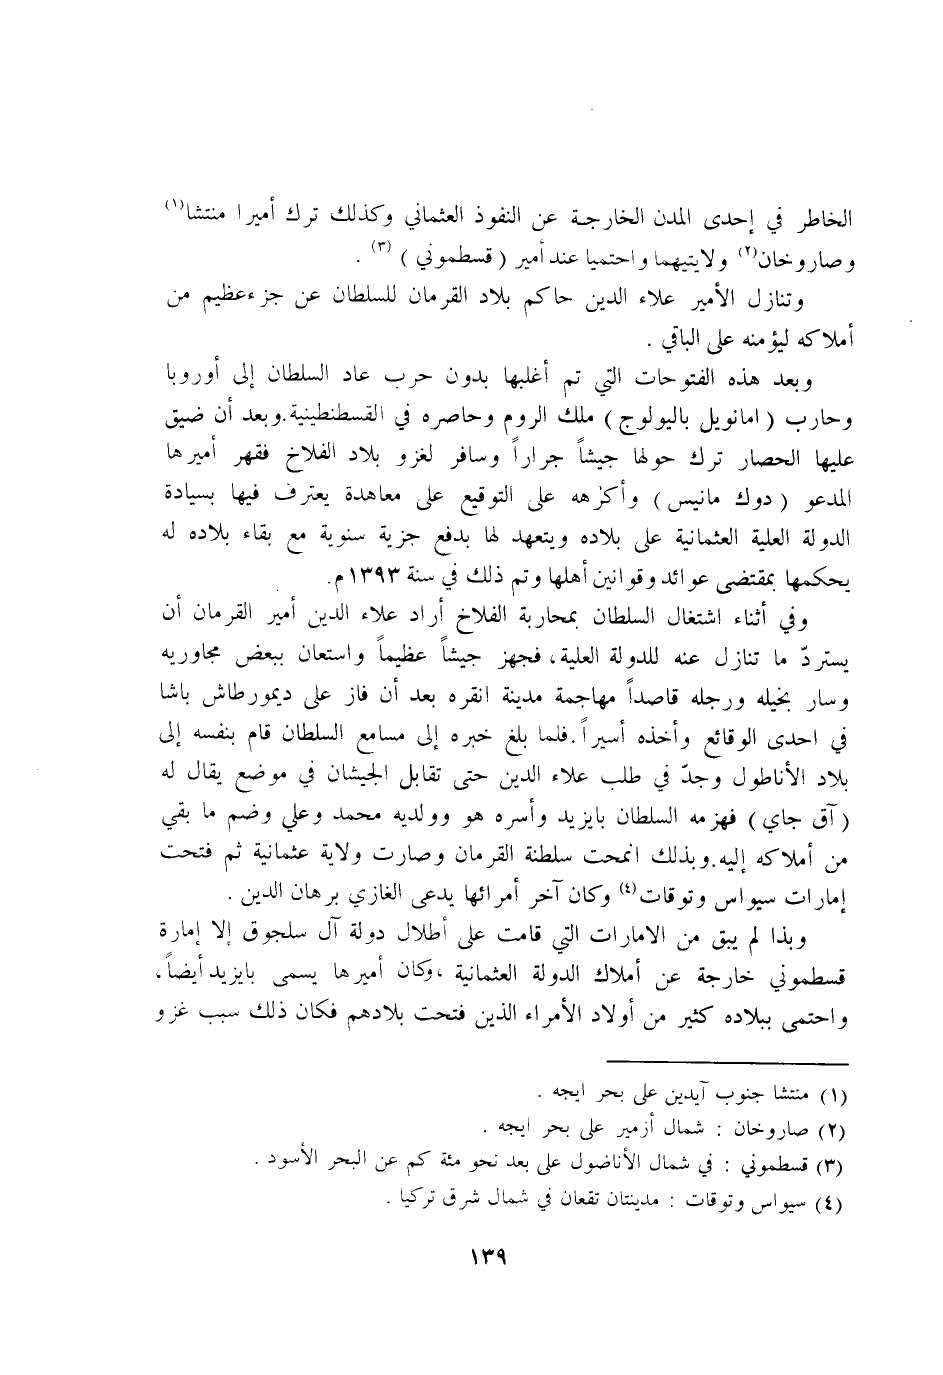 الخاطر في إحدى المدن الخارجة عن النفوذ العثماني وكذلك ترك أميرا منتشا(١)
وصاروخان(٢) ولايتيهما واحتميا عند أمير (قسطموني) (٣) .
وتنازل الأمير علاء الدين حاكم بلاد القرمان للسلطان عن جزء عظيم من
أملاكه ليؤمنه على الباقي .
وبعد هذه الفتوحات التي تم أغلبها بدون حرب عاد السلطان إلى أوروبا
وحارب (امانويل باليولوج) ملك الروم وحاصره في القسطنطينية.وبعد أن ضيق
عليها الحصار ترك حولها جيشاً جراراً وسافر لغزو بلاد الفلاخ فقهر أميرها
المدعو (دوك مانيس) وأكرهه على التوقيع على معاهدة يعترف فيها بسيادة
الدولة العلية العثمانية على بلاده ويتعهد لها بدفع جزية سنوية مع بقاء بلاده له
يحكمها بمقتضى عوائد وقوانين أهلها وتم ذلك في سنة ١٣٩٣م.
وفي أثناء اشتغال السلطان بمحاربة الفلاخ أراد علاء الدين أمير القرمان أن
يستردّ ما تنازل عنه للدولة العلية، فجهز جيشاً عظيماً واستعان ببعض مجاوريه
وسار بخيله ورجله قاصداً مهاجمة مدينة انقره بعد أن فاز على ديمورطاش باشا
في احدى الوقائع وأخذه أسيراً.فلما بلغ خبره إلى مسامع السلطان قام بنفسه إلى
بلاد الأناطول وجدّ في طلب علاء الدين حتى تقابل الجيشان في موضع يقال له
(آق جاي) فهزمه السلطان بايزيد وأسره هو وولديه محمد وعلي وضم ما بقي
من أملاكه إليه.وبذلك انمحت سلطنة القرمان وصارت ولاية عثمانية ثم فتحت
إمارات سيواس وتوقات(٤) وكان آخر أمرائها يدعى الغازي برهان الدين .
وبذا لم يبق من الامارات التي قامت على أطلال دولة آل سلجوق إلا إمارة
قسطموني خارجة عن أملاك الدولة العثمانية ،وكان أميرها يسمى بايزيد أيضاً،
واحتمى ببلاده كثير من أولاد الأمراء الذين فتحت بلادهم فكان ذلك سبب غزو
(١) منتشا جنوب آيدين على بحر ايجه .
(٢) صاروخان : شمال أزمير على بحر ايجه .
(٣) قسطموني : في شمال الأناضول على بعد نحو مئة كم عن البحر الأسود .
(٤) سيواس وتوقات : مدينتان تقعان في شمال شرق تركيا .
١٣٩